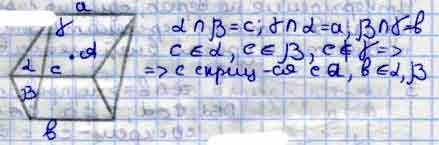 a
γ
α c • A
β
b
α∩β=c; γ∩α=a; β∩γ=b
c∈α, c∈β, c∉γ=>
=> c скрищ-ся с a, b∈α, β